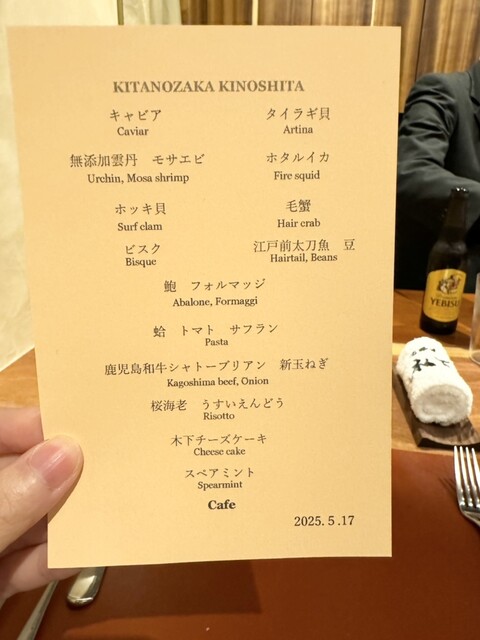 KITANOZAKA KINOSHITA
キャビア
Caviar
タイラギ貝
Artina
無添加雲丹　モサエビ
Urchin, Mosa shrimp
ホタルイカ
Fire squid
ホッキ貝
Surf clam
毛蟹
Hair crab
ビスク
Bisque
江戸前太刀魚　豆
Hairtail, Beans
鮑　フォルマッジ
Abalone, Formaggi
蛤　トマト　サフラン
Pasta
鹿児島和牛シャトーブリアン　新玉ねぎ
Kagoshima beef, Onion
桜海老　うすいえんどう
Risotto
木下チーズケーキ
Cheese cake
スペアミント
Spearmint
Cafe
2025. 5 .17
YEBISU